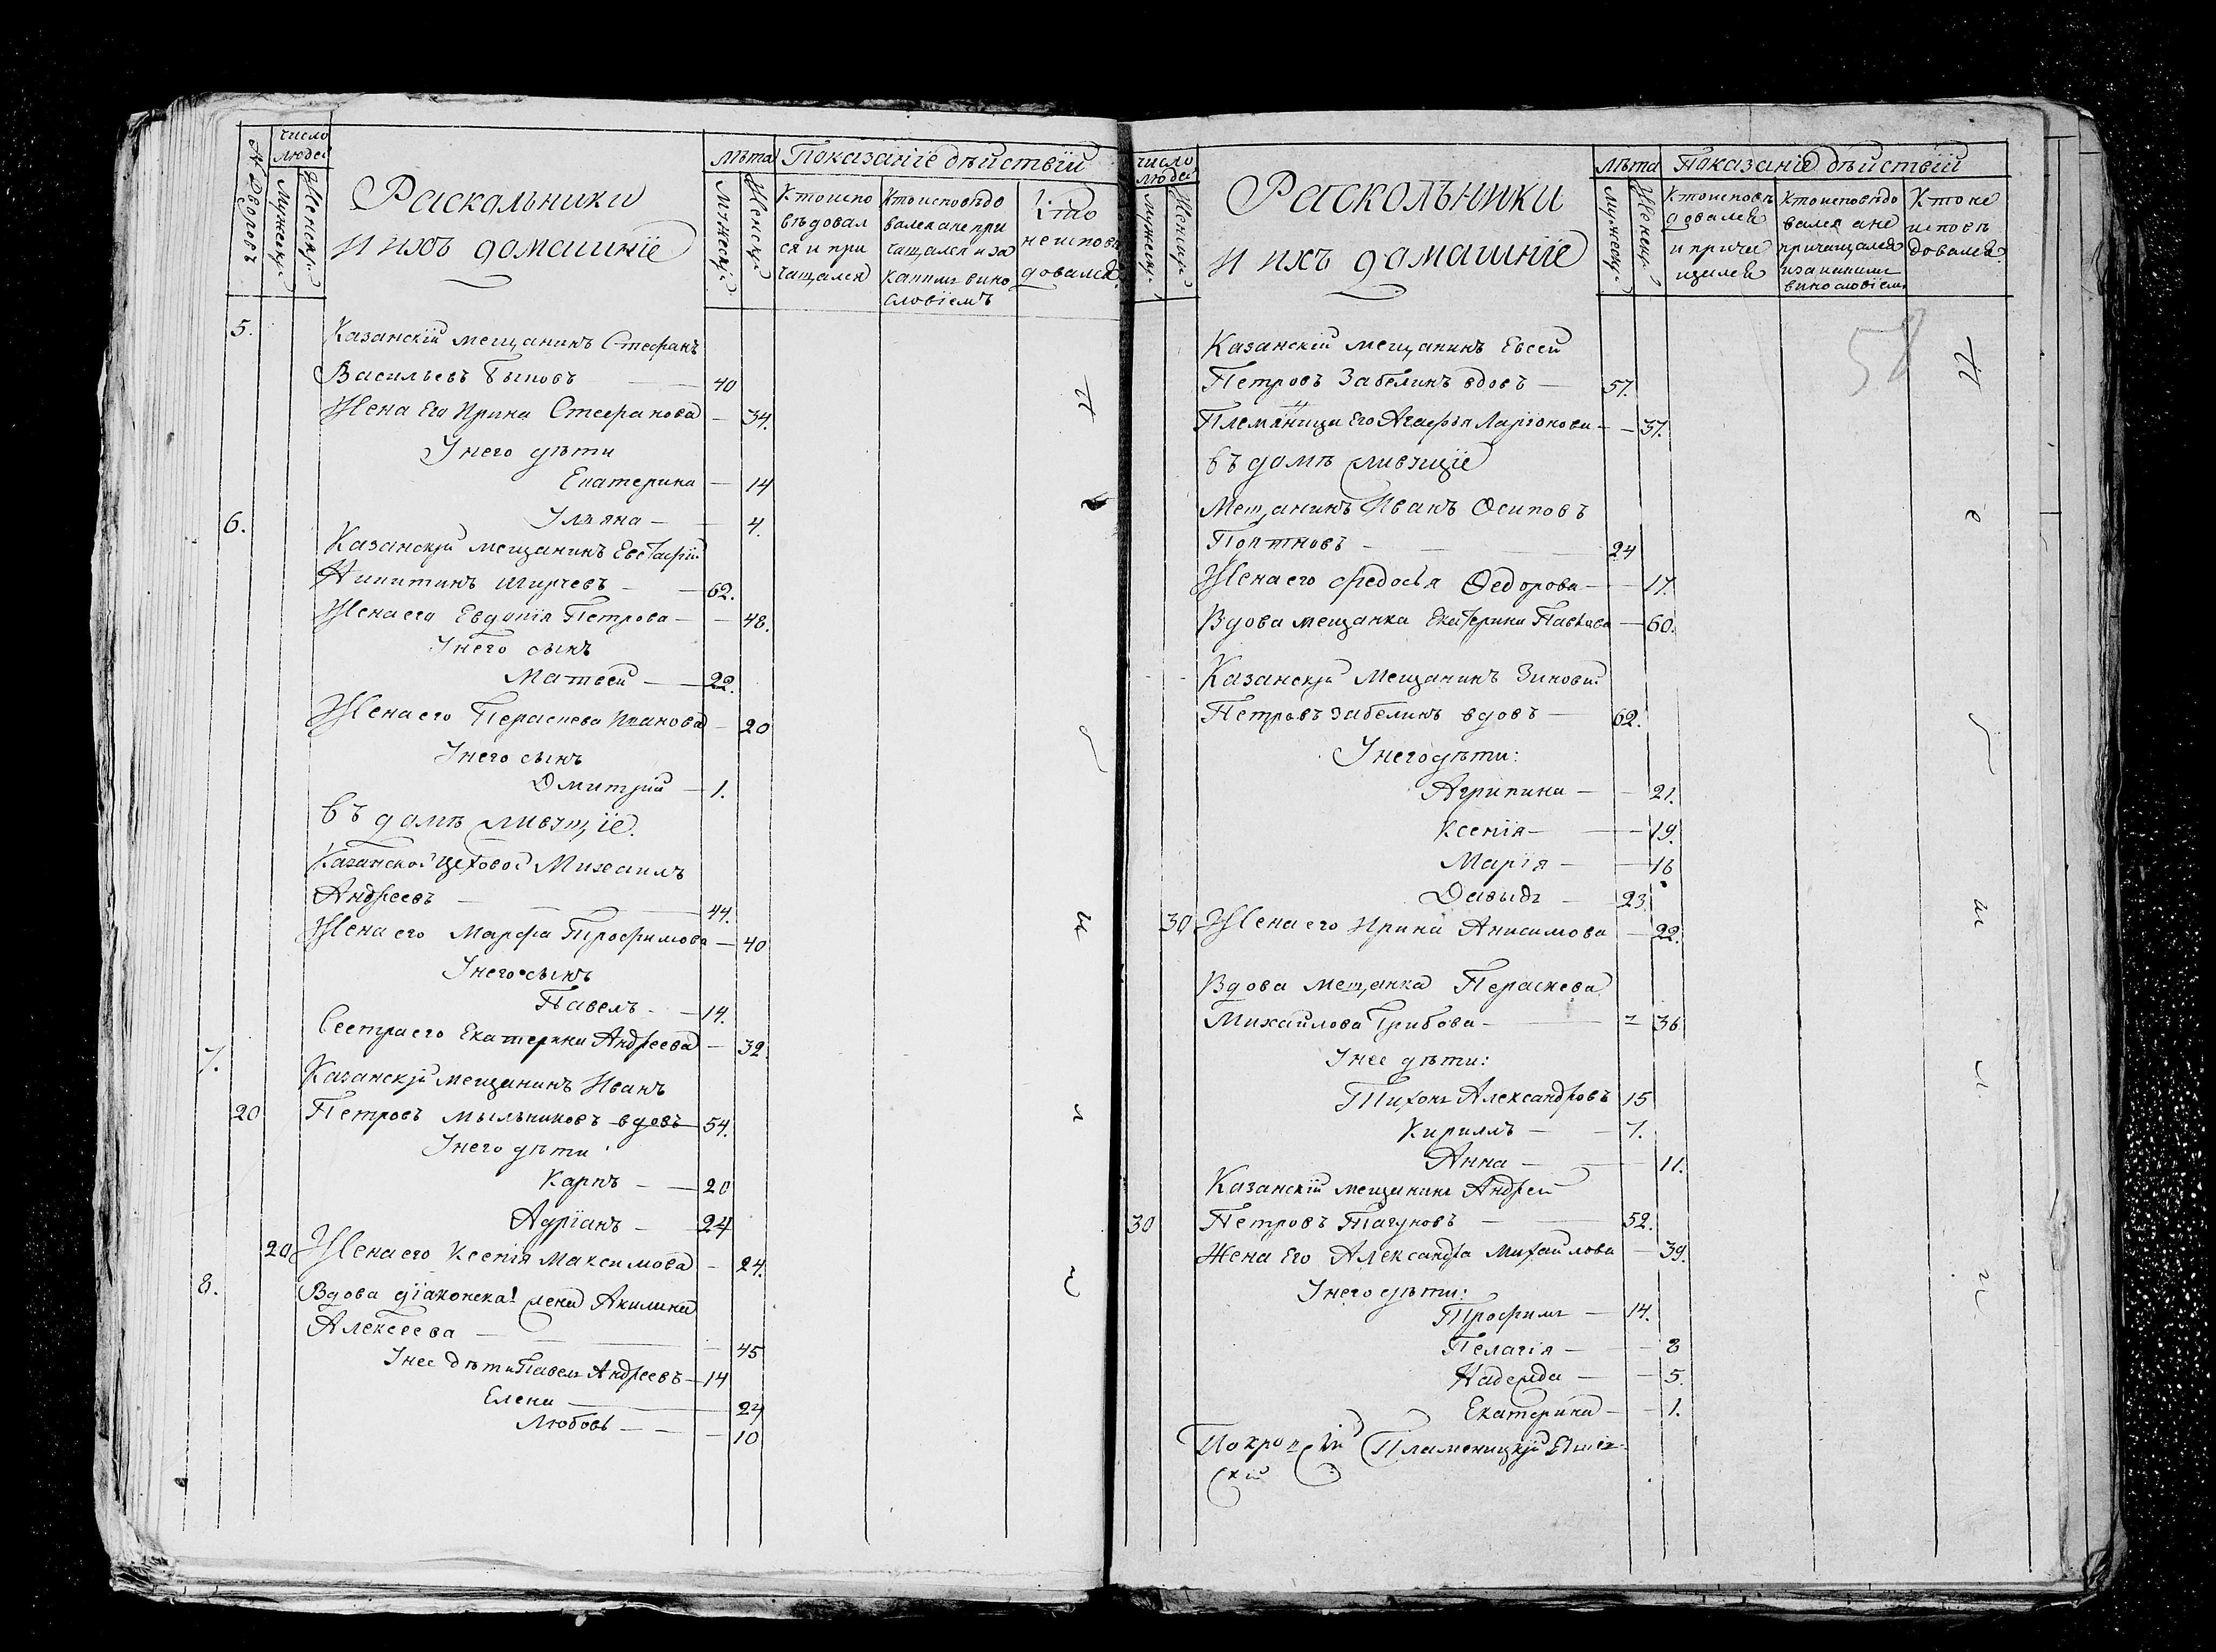 № Дворовъ
число людей
Мужескъ.
Женскъ.
Раскольники
и ихъ домашнiе
Лѣта
Мужескъ.
Женскъ.
Показанiе дѣйствiй
Кто испо
вѣдовал
ся и при
чащался
Кто исповѣдо
вался а не при
чащался и за
какимъ вино
словiемъ
Кто
не испове
довался.
5.
Казанскiй мещанинъ Стефанъ
Васильевъ — 40
Жена Его Ирина Стефанова — 34.
У него дѣти
Екатерина — 14
Ульяна — 4.
6.
Казанскiй мещанинъ Евстафiй
Никитинъ — 62.
Жена его Евдокiя Петрова — 48.
У него сынъ
Матвей — 22.
Жена его Пераскева Иванова — 20
У него сынъ
Дмитрiй — 1.
въ домѣ живущiе.
Казанской Цеховой Михаилъ
Андреевъ — 44.
Жена его Марфа Трофимова — 40
У него сынъ
Павелъ — 14.
Сестра его Екатерина Андреева — 32
7.
Казанскiй мещанинъ Иванъ
20 Петровъ Мыльниковъ вдовъ 54.
У него дѣти
Карпъ — 20
Адрiанъ — 24
20 Жена его Ксенiя Максимова — 24.
8.
Вдова дiаконска! жена Акилина
Алексеева — 45
У нее дѣти Павелъ Андреевъ — 14
Елена — 24
Любовь — 10
число людей
Мужескъ.
Женскъ.
Раскольники
и ихъ домашнiе
Лѣта
Мужескъ.
Женскъ.
Показанiе дѣйствiй
Кто исповѣ
довался
и прича
щался
Кто исповѣдо
вался а не
причащался
и за какимъ
винословiемъ
Кто не
исповѣ
довался.
58
Казанскiй мещанинъ Евсей
Петровъ Забелинъ вдовъ — 57.
Племянница Его Агафья Ларiонова — 37.
въ домѣ живущiе
Мещанинъ Иванъ Осиповъ
— 24
Жена его Федосья Федорова — 17.
Вдова мещанка Екатерина Павлова — 60.
Казанскiй Мещанинъ Зиновiй
Петровъ Забелинъ вдовъ — 62.
У него дѣти:
Агрипина — 21.
Ксенiя — 19.
Марiя — 16
Давыдъ — 23.
30 Жена его Ирина Анисимова — 22.
Вдова мещанка Пераскева
Михайлова Грибова — 36
У нее дѣти:
Тихонъ Александровъ 15
Кирилъ — 7.
Анна — 11.
Казанскiй мещанинъ Андрей
30 Петровъ — 52.
Жена Его Александра Михайлова — 39.
У него дѣти:
Трофимъ — 14.
Пелагiя — 8
Надежда — 5.
Екатерина — 1.